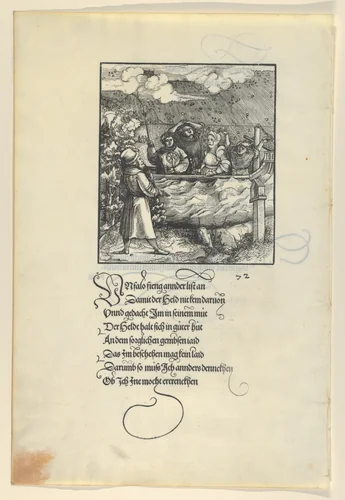 72
Unfalo fieng annder list an
Damit der Held nit kem daruon
Vnnd gedacht Im in seinem mut
Der Heldt halt sich in guter hut
An dem sorglichen gembsen iaid
Das Im beschehen mag kein laid
Darumb so muß Ich annders dencken
Ob Ich Ine mocht ertrencken